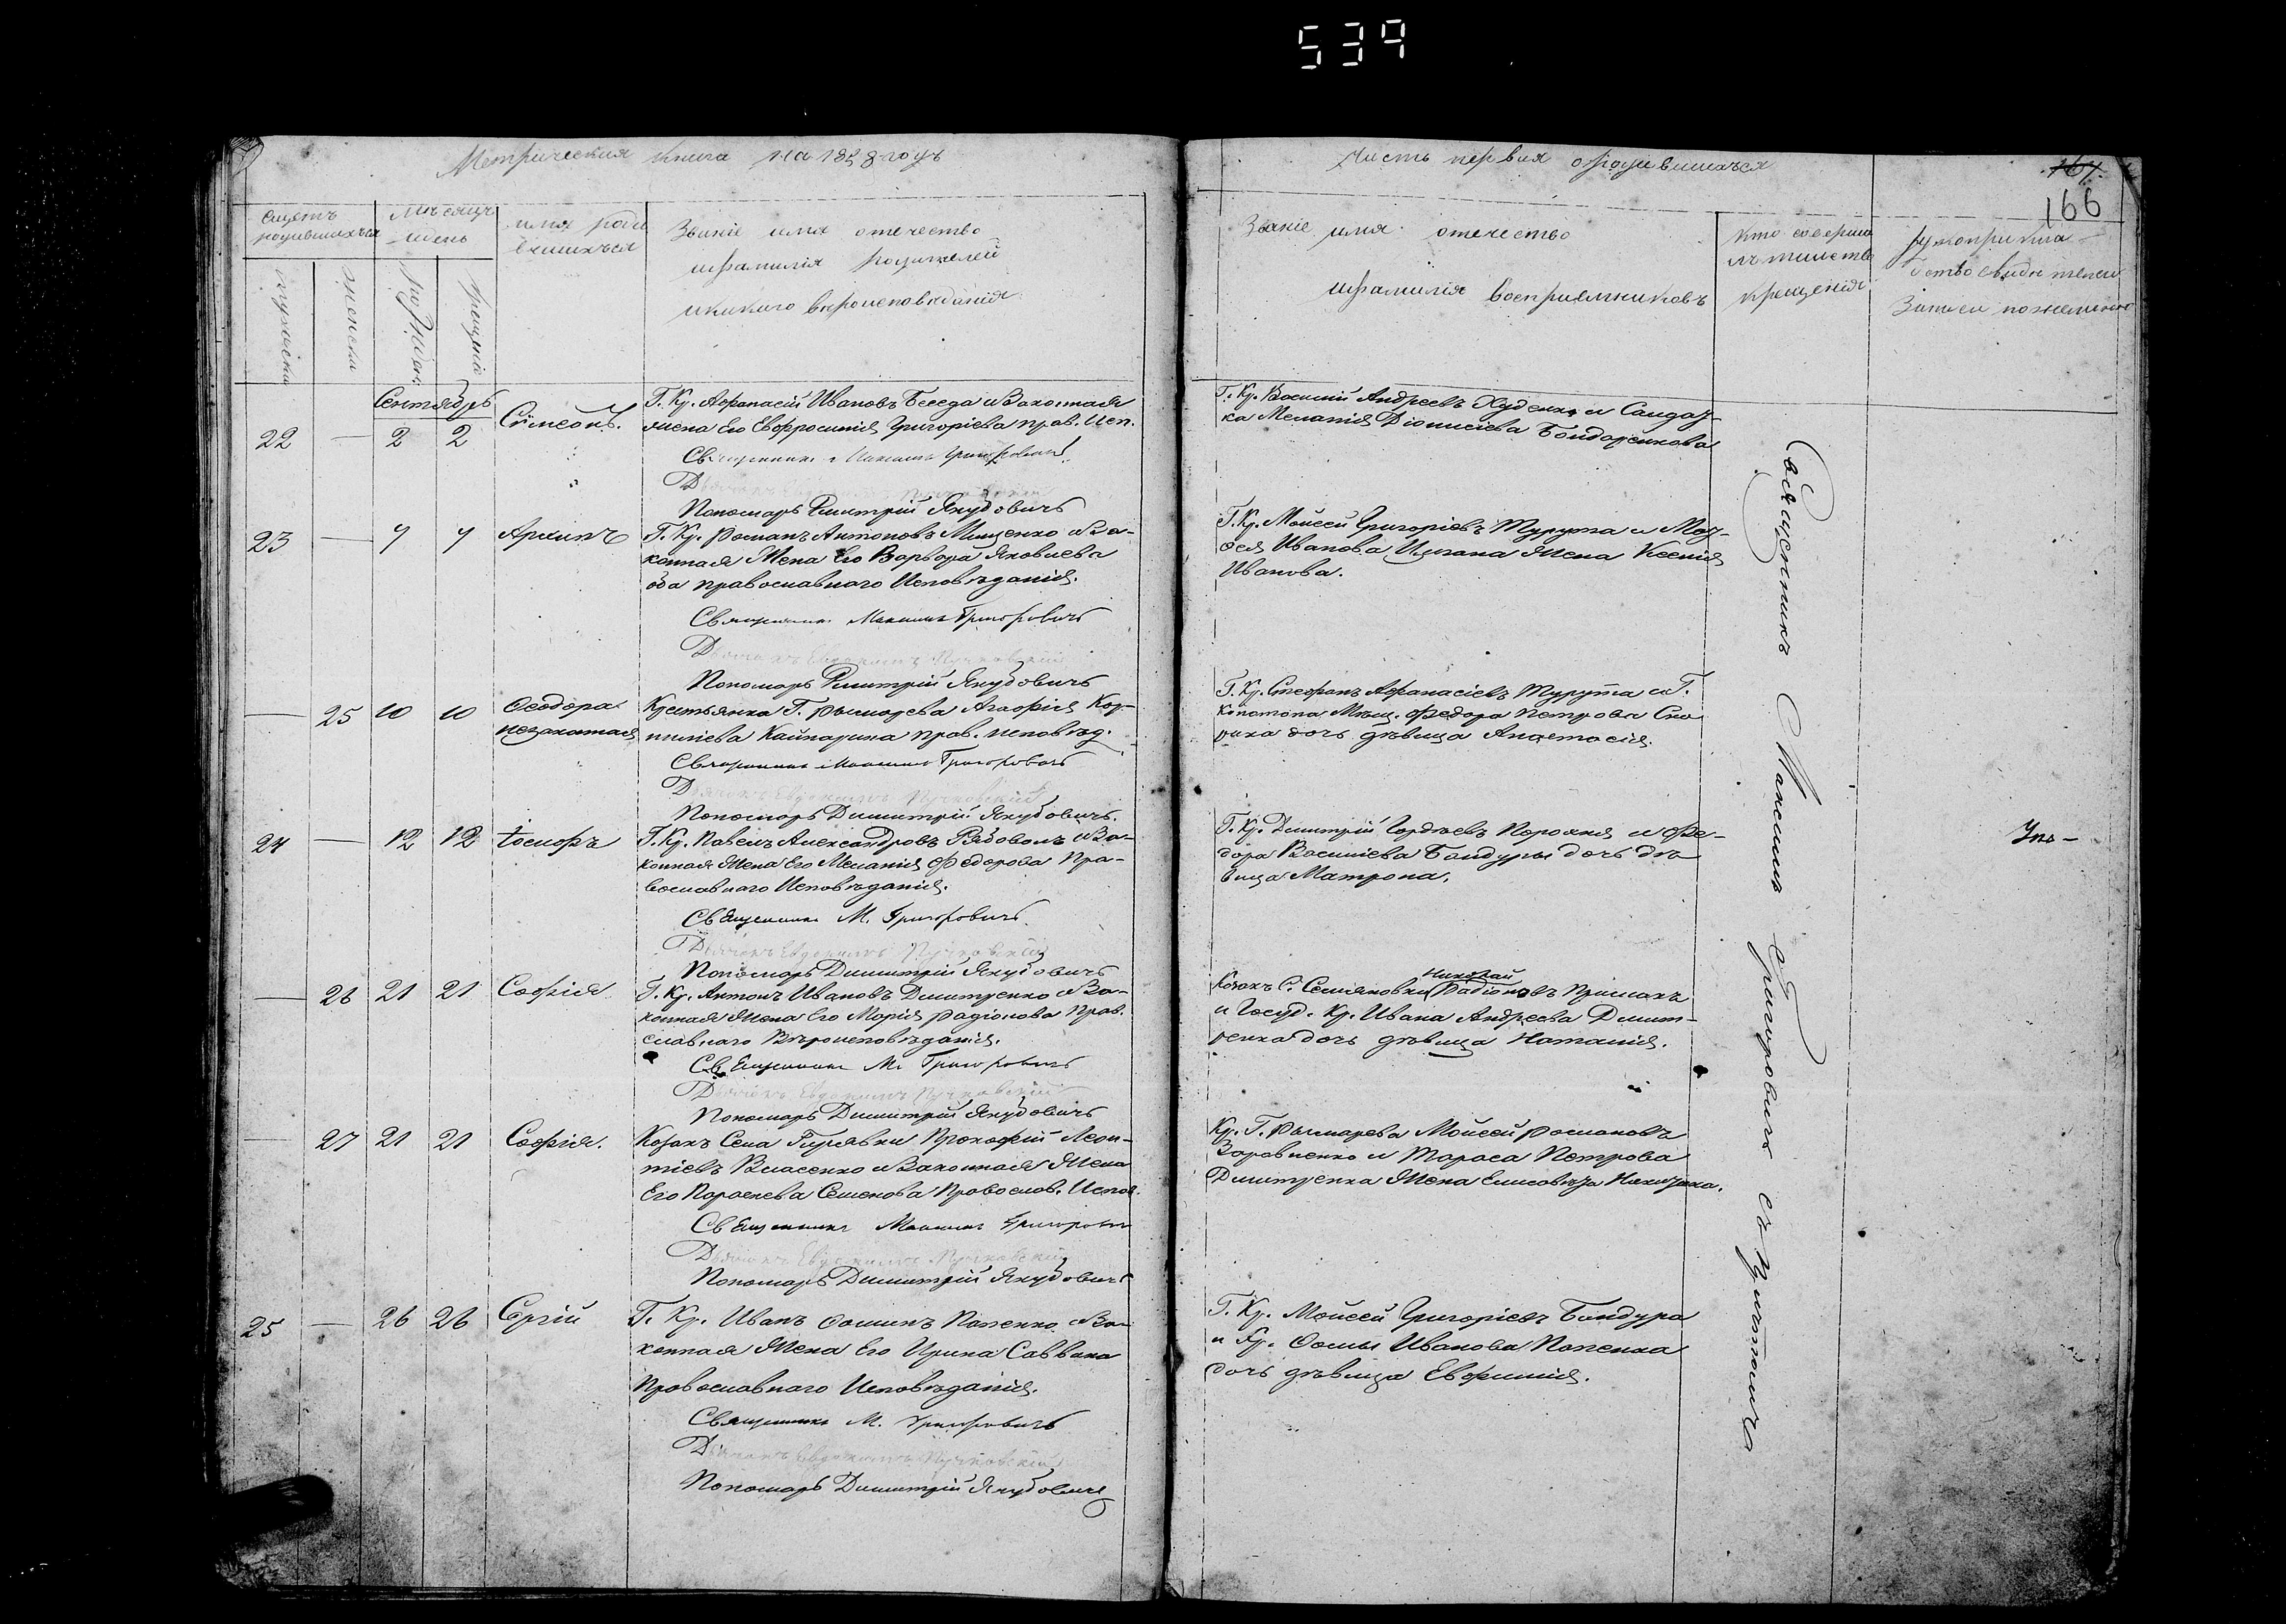 539
Метрическая книга на 1858 годъ
Часть первая о родившихся
167.
166
Счетъ родившихся
Мѣсяцъ и день
имя родившихся
Званіе имя отечество
и фамилія родителей
и какого вѣроисповѣданія
мужеска
женска
рожден.
крещенія
Званіе имя отечество
и фамилія воспріемниковъ
Кто соверша
лъ таинство
крещенія
рукоприкла
ство свидѣтелей
Записи по желанію
Сентябрь
22 — 2 2 Сѵмеонъ.
Г. Кр. Афанасій Ивановъ Беседа и Законная
жена Его Евфросинія Григоріева прав. Исп.
Священникъ Максимъ Григоровичъ
Дьячокъ
Пономарь Димитрій Якубовичъ
Г. Кр. Василій Андреевъ Худенко и Солдат
ка Меланія Діонисіева Бондаренкова
23 — 7 7 Архипъ
Г. Кр. Романъ Антоновъ Мищенко и За-
конная Жена Его Варвара Яковлева
оба православнаго Исповѣданія.
Священникъ Максимъ Григоровичъ
Дьячокъ Евдокимъ Пучковскій
Пономарь Димитрій Якубовичъ
Г. Кр. Моисей Григоріевъ Турута и
Иванова жена Ксенія
Иванова.
— 25 10 10 Ѳеодора
незаконная
Крестьянка Г. Рымарева Агафія Кор-
ниліева Кайнарина прав. исповѣд.
Священникъ Максимъ Григоровичъ
Дьячокъ Евдокимъ Пучковскій
Пономарь Димитрій Якубовичъ.
Г. Кр. Стефанъ Афанасіевъ Турута и Г.
Конотопа Мѣщ. Федора Петрова
дочь дѣвица Анастасія.
24 — 12 12 Іосифъ
Г. Кр. Павелъ Александровъ Рябоволъ и За-
конная Жена Его Меланія Федорова Пра-
вославнаго Исповѣданія.
Священникъ М. Григоровичъ
Дьячокъ Евдокимъ Пучковскій
Пономарь Димитрій Якубовичъ
Г. Кр. Димитрій Гордѣевъ Порохня и Фе-
дора Василіева Бандуры дочь дѣ-
вица Матрона.
— 26 21 21 Софія
Г. Кр. Антонъ Ивановъ Дмитренко и За-
конная Жена Его Марія Радіонова Прав.
славнаго Вѣроисповѣданія.
Священникъ М. Григоровичъ
Дьячокъ Евдокимъ Пучковскій
Пономарь Димитрій Якубовичъ
Николай
Козакъ С. Семяновки Радіоновъ Примакъ
и Госуд. Кр. Ивана Андреева Дмит-
ренка дочь дѣвица Наталія.
— 27 21 21 Софія.
Козакъ Села Гирявки Прокофій Леон-
тіевъ Власенко и Законная Жена
Его Параскева Семенова Православ. Испов.
Священникъ Максимъ Григоровичъ
Дьячокъ Евдокимъ Пучковскій
Пономарь Димитрій Якубовичъ
Кр. Г. Рымарева Моисей Романовъ
и Тараса Петрова
Дмитренка Жена Елисавета
25 — 26 26 Сергій
Г. Кр. Иванъ Ѳоминъ Папенко и За-
конная Жена Его Ирина Саввина
Православнаго Исповѣданія.
Священникъ М. Григоровичъ
Дьячокъ Евдокимъ Пучковскій
Пономарь Димитрій Якубовичъ
Г. Кр. Моисей Григоріевъ Бандура
и Кр. Ѳомы Иванова Папенка
дочь дѣвица Евфимія.
Священникъ Максимъ Григоровичъ съ причтомъ